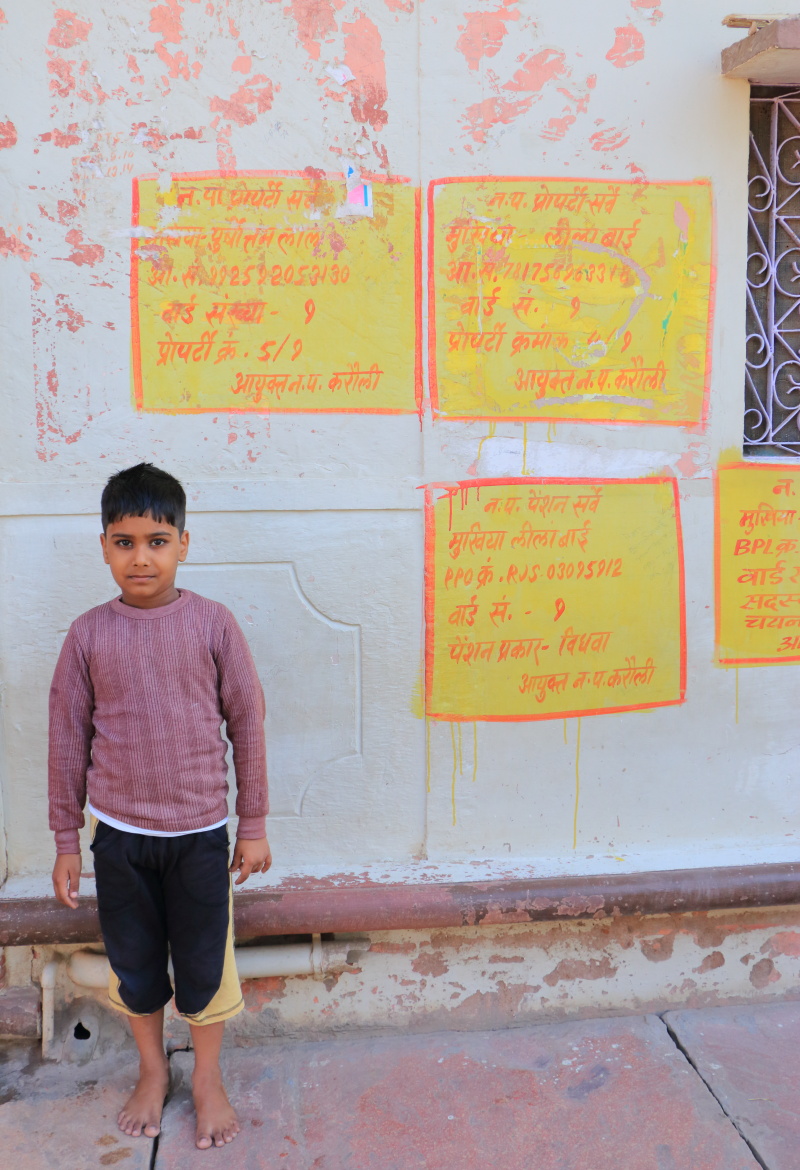 न.पा. प्रोपर्टी सर्वे
मुखिया पुर्षोत्तम लाल
आ.सं.
वार्ड संख्या - १
प्रोपर्टी क्रं. 5/१
आयुक्त न.प. करौली
न.प. प्रोपर्टी सर्वे
मुखिया - लीला बाई
आ.सं.
वार्ड सं. १
प्रोपर्टी क्रमांक
आयुक्त न.प. करौली
न.प. पेंशन सर्वे
मुखिया लीला बाई
PPO क्रं. RJS
वार्ड सं. - १
पेंशन प्रकार - विधवा
आयुक्त न.प. करौली
न.
मुखिया
BPL क्र.
वार्ड
सदस्
चयन